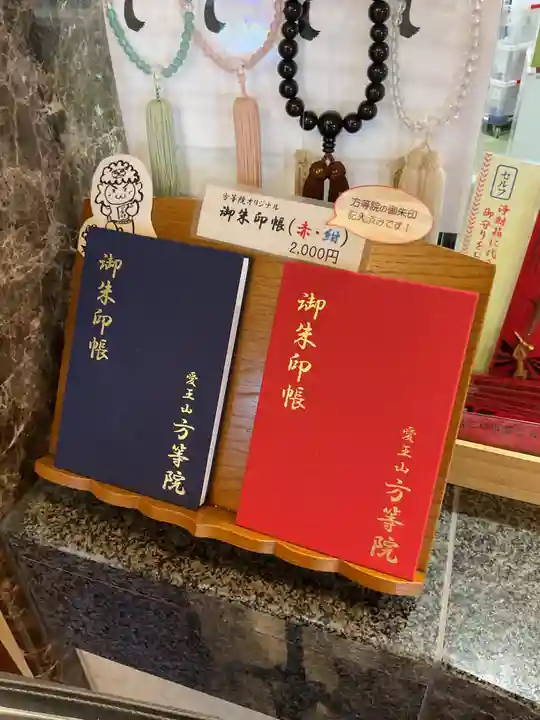 方等院オリジナル
御朱印帳(赤・紺)
2,000円
方等院の御朱印
記入済みです!
御朱印帳
愛王山方等院
御朱印帳
愛王山方等院
セルフ